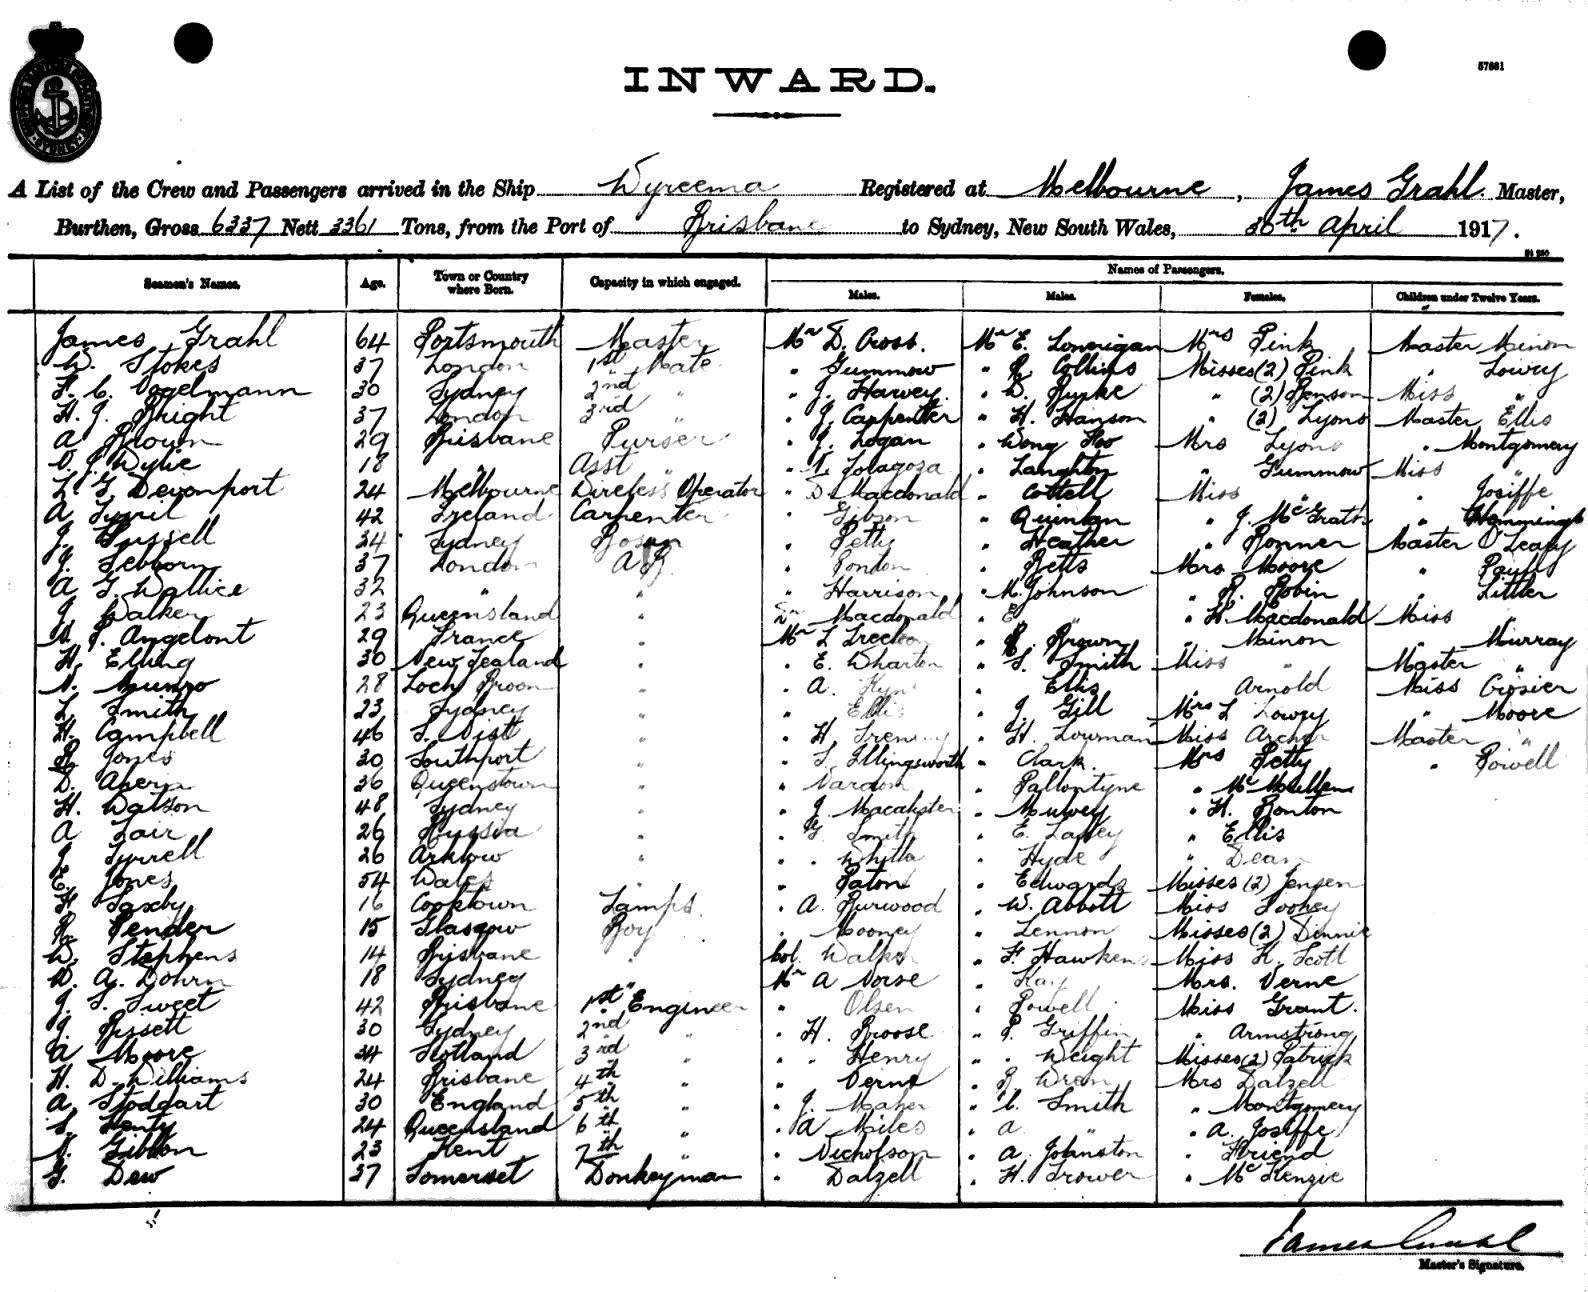 INWARD.
57681
A List of the Crew and Passengers arrived in the Ship Wyreema Registered at Melbourne, James Grahl. Master,
Burthen, Gross 6337 Nett 3361 Tons, from the Port of Brisbane to Sydney, New South Wales, 30th April 1917.
Seamen's Names. Age. Town or Country where Born. Capacity in which engaged. Names of Passengers.
Males. Males. Females. Children under Twelve Years.
James Grahl 64 Portsmouth Master Mr D. Cross. Mr E. Lonnigan Mrs Pink Master Minon
W. Stokes 37 London 1st Mate " Gummow " R. Collins Misses (2) Pink " Lowry
F. C. Vogelmann 30 Sydney 2nd " " J. Harvey. " D. Burke " (2) Benson Miss "
H. J. Bright 37 London 3rd " " J. Carpenter " H. Hanson " (2) Lyons Master Ellis
A Brown 29 Brisbane Purser " J. Logan " Wong Hoo Mrs Lyons " Montgomery
V. J. Wylie 18 " Asst " " Folagoza " Langhton " Gummow Miss "
L. G. Devonport 24 Melbourne Wireless Operator " D. Macdonald " Cottell Miss " " Josiffe
A Tyril 42 Ireland Carpenter " Gibson " Quinlan " J. McGrath "
J. Russell 34 Sydney Bosun " Petty " Heather " Bonner Master O'Leary
J. Sebborn 37 London A.B. " London " Betts Mrs Moore "
A G. Wallice 32 " " " Harrison " M. Johnson " R. Robin " Littler
J Walker 23 Queensland " Dr Macdonald " E " " H. Macdonald Miss "
P. Angelont 29 France " Mr L " R. Brown " Minon " Murray
H. Elling 30 New Zealand " " E. Wharton " S. Smith Miss " Master "
N. Munro 28 Loch Broon " " A. " Ellis " Arnold Miss Crosier
L Smith 23 Sydney " " Ellis " J. Gill Mrs L Lowry " Moore
H. Campbell 46 S. Uist " " H. " H. Lowman Miss Archer Master "
R Jones 30 Southport " " S. Illingsworth " Clark. Mrs Petty " Powell
D. Ahern 36 Queenstown " " Vardon " Ballantyne " McMullen
H. Watson 48 Sydney " " J. Macalister " Mulvey " H. Bonton
A Lair 26 Russia " " G Smith " E. Lalley " Ellis
J Tyrrell 26 Arklow " " " Whitla " Hyde " Dean
E. Jones 54 Wales " " Paton " Edwards Misses (2) Jensen
H Saxby 16 Cooktown Lamps. " A. Burwood " W. Abbott Miss Toohey
R. Pender 15 Glasgow Boy " Mooney " Lennon Misses (2) Dinnie
W. Stephens 14 Brisbane " Col. Walker " F. Hawkens Miss H. Scott
W. A. Dohrn 18 Sydney " Mr A Vorse " Kay Mrs. Verne
J. S. Sweet 42 Brisbane 1st Engineer " Olsen " Powell Miss Grant.
J. Bissett 30 Sydney 2nd " " H. Boose " P. Griffin " Armstrong
A Moore 24 Scotland 3rd " " " Henry " " Weight Misses (2) Patrick
H. D. Williams 24 Brisbane 4th " " Verne " R Wren Mrs Dalzell
A. Stoddart 30 England 5th " " J. Maher " C. Smith " Montgomery
S. Henty 24 Queensland 6th " " A Miles " A " " A. Josiffe
N. Gibbon 23 Kent 7th " " Nicholson " A. Johnston " Friend
G. Dew 37 Somerset Donkeyman " Dalzell " H. Trower " McKenzie
James Grahl
Master's Signature.